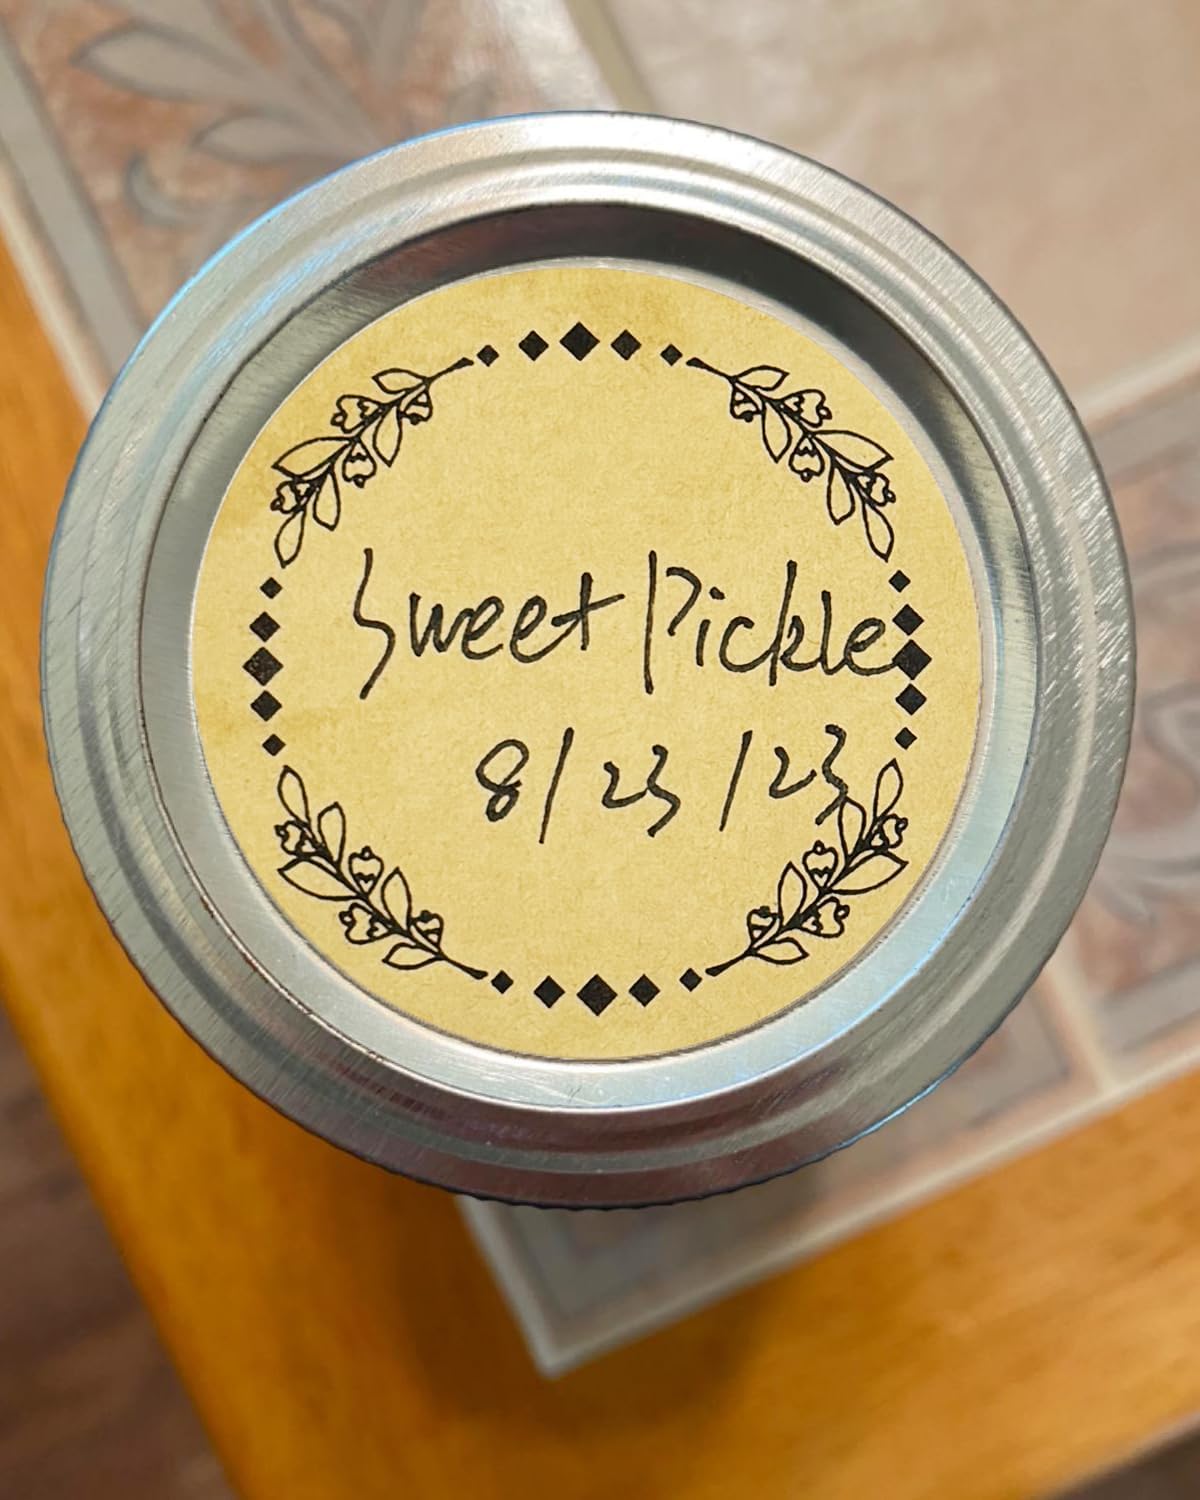 Sweet Pickle
8/23/23